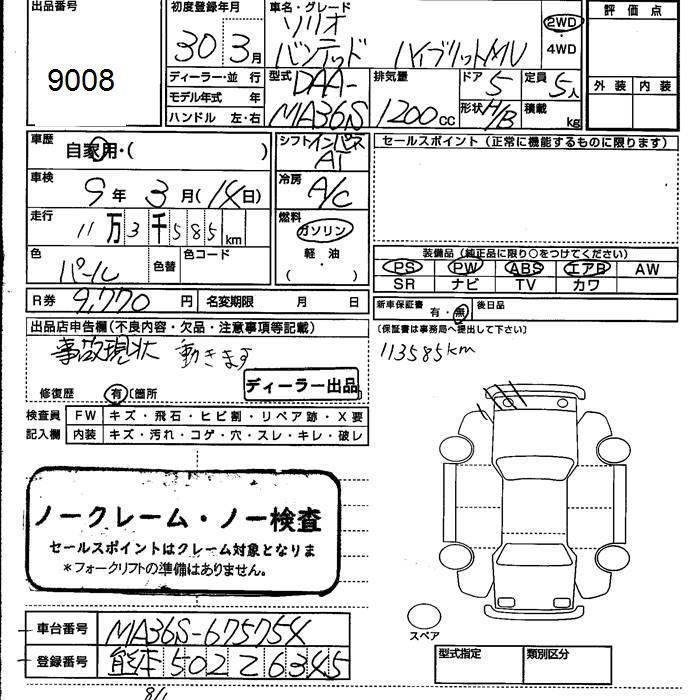 出品番号
9008
初度登録年月
30年 3月
車名・グレード
ソリオ
バンデッド ハイブリットMV
2WD
・
4WD
評価点
外装 内装
ディーラー・並 行
モデル年式 年
ハンドル 左・右
型式 DAA-
MA36S
排気量
1200cc
ドア 5
形状 H/B
定員 5人
積載 kg
車歴
自家用・( )
車検
9年 3月(14日)
走行
11万3千585km
色
パール
色替
色コード
シフト インパネ
AT
冷房
A/C
燃料
ガソリン
軽・油
( )
セールスポイント(正常に機能するものに限ります)
装備品(純正品に限り○をつけてください)
PS PW ABS エアB AW
SR ナビ TV カワ
R券 9,770 円 名変期限 月 日
新車保証書 有・無 後日品
(保証書は事務局へ提出して下さい)
113585km
出品店申告欄(不良内容・欠品・注意事項等記載)
事故現状 動きます
修復歴 有(箇所
ディーラー出品
検査員
記入欄
FW キズ・飛石・ヒビ割・リペア跡・X要
内装 キズ・汚れ・コゲ・穴・スレ・キレ・破レ
ノークレーム・ノー検査
セールスポイントはクレーム対象となりま
*フォークリフトの準備はありません。
スペア
車台番号 MA36S-675754
登録番号 熊本 502 て 6345
型式指定 類別区分